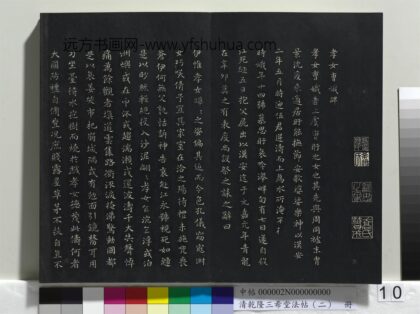 远方书画网-www.yfshuhua.com
孝女曹娥碑
孝女曹娥者上虞曹盱之女也其先與周同祖末胄
景沈爰來適居盱能撫節安歌婆娑樂神以漢安
二年五月時迎伍君逆濤而上爲水所淹不得其
時娥年十四號慕思盱哀吟澤畔旬有七日遂自投
江死經五日抱父屍出以漢安迄于元嘉元年青龍
在辛卯莫之有表度尚設祭之誄之辭曰
伊惟孝女曄曄之姿偏其返而令色孔儀窈窕淑
女巧笑倩兮宜其家室在洽之陽待禮未施嗟喪
蒼伊何無父孰怙訴神告哀赴江永號視死如歸
是以眇然輕絕投入沙泥翩翩孝女乍沈乍浮或泊
洲嶼或在中流或趨湍瀨或還波濤千夫失聲悼
痛萬餘觀者填道雲集路衢流淚掩涕驚動國都
是以哀姜哭市杞崩城隅或有尅面引鏡剺耳用
刀坐臺待水抱樹而燒於戲孝女德茂此儔何者
大國防禮自修豈況庶賤露屋草茅不扶自直不
中帖 000002N000000000
清乾隆三希堂法帖(二) 冊
10